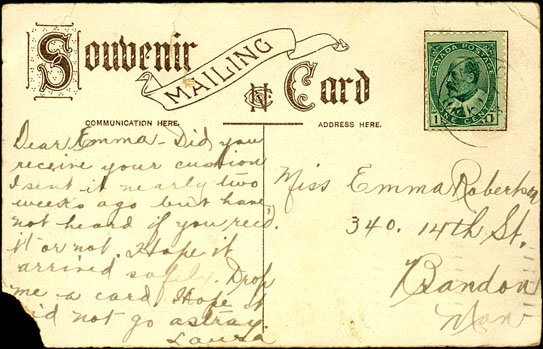 Souvenir
MAILING
Card
COMMUNICATION HERE.
ADDRESS HERE.
CANADA POSTAGE
1 ONE CENT 1
Dear Emma - Did you
receive your cushion
I sent it nearly two
weeks ago but have
not heard if you rec'd.
it or not. I hope it
arrived safely. Drop
me a card I hope it
did not go astray.
Laura
Miss Emma Robertson
340. 14th St.
Brandon
Man